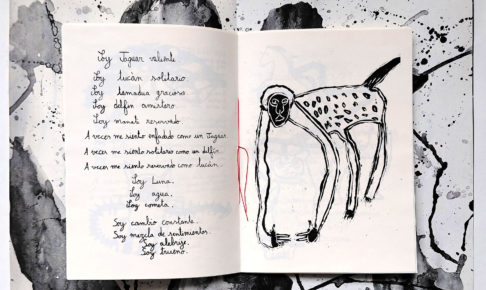 Soy Jaguar valiente
Soy tucán solitario.
Soy tamadua gracioso
Soy delfín amistoso.
Soy manatí reservado.
A veces me siento enfadado como un Jaguar.
A veces me siento solitario como un delfín.
A veces me siento reservado como tucán.
Soy Luna.
Soy agua.
Soy cometa.
Soy cambio constante.
Soy mezcla de sentimientos.
Soy alebrije.
Soy trueno.